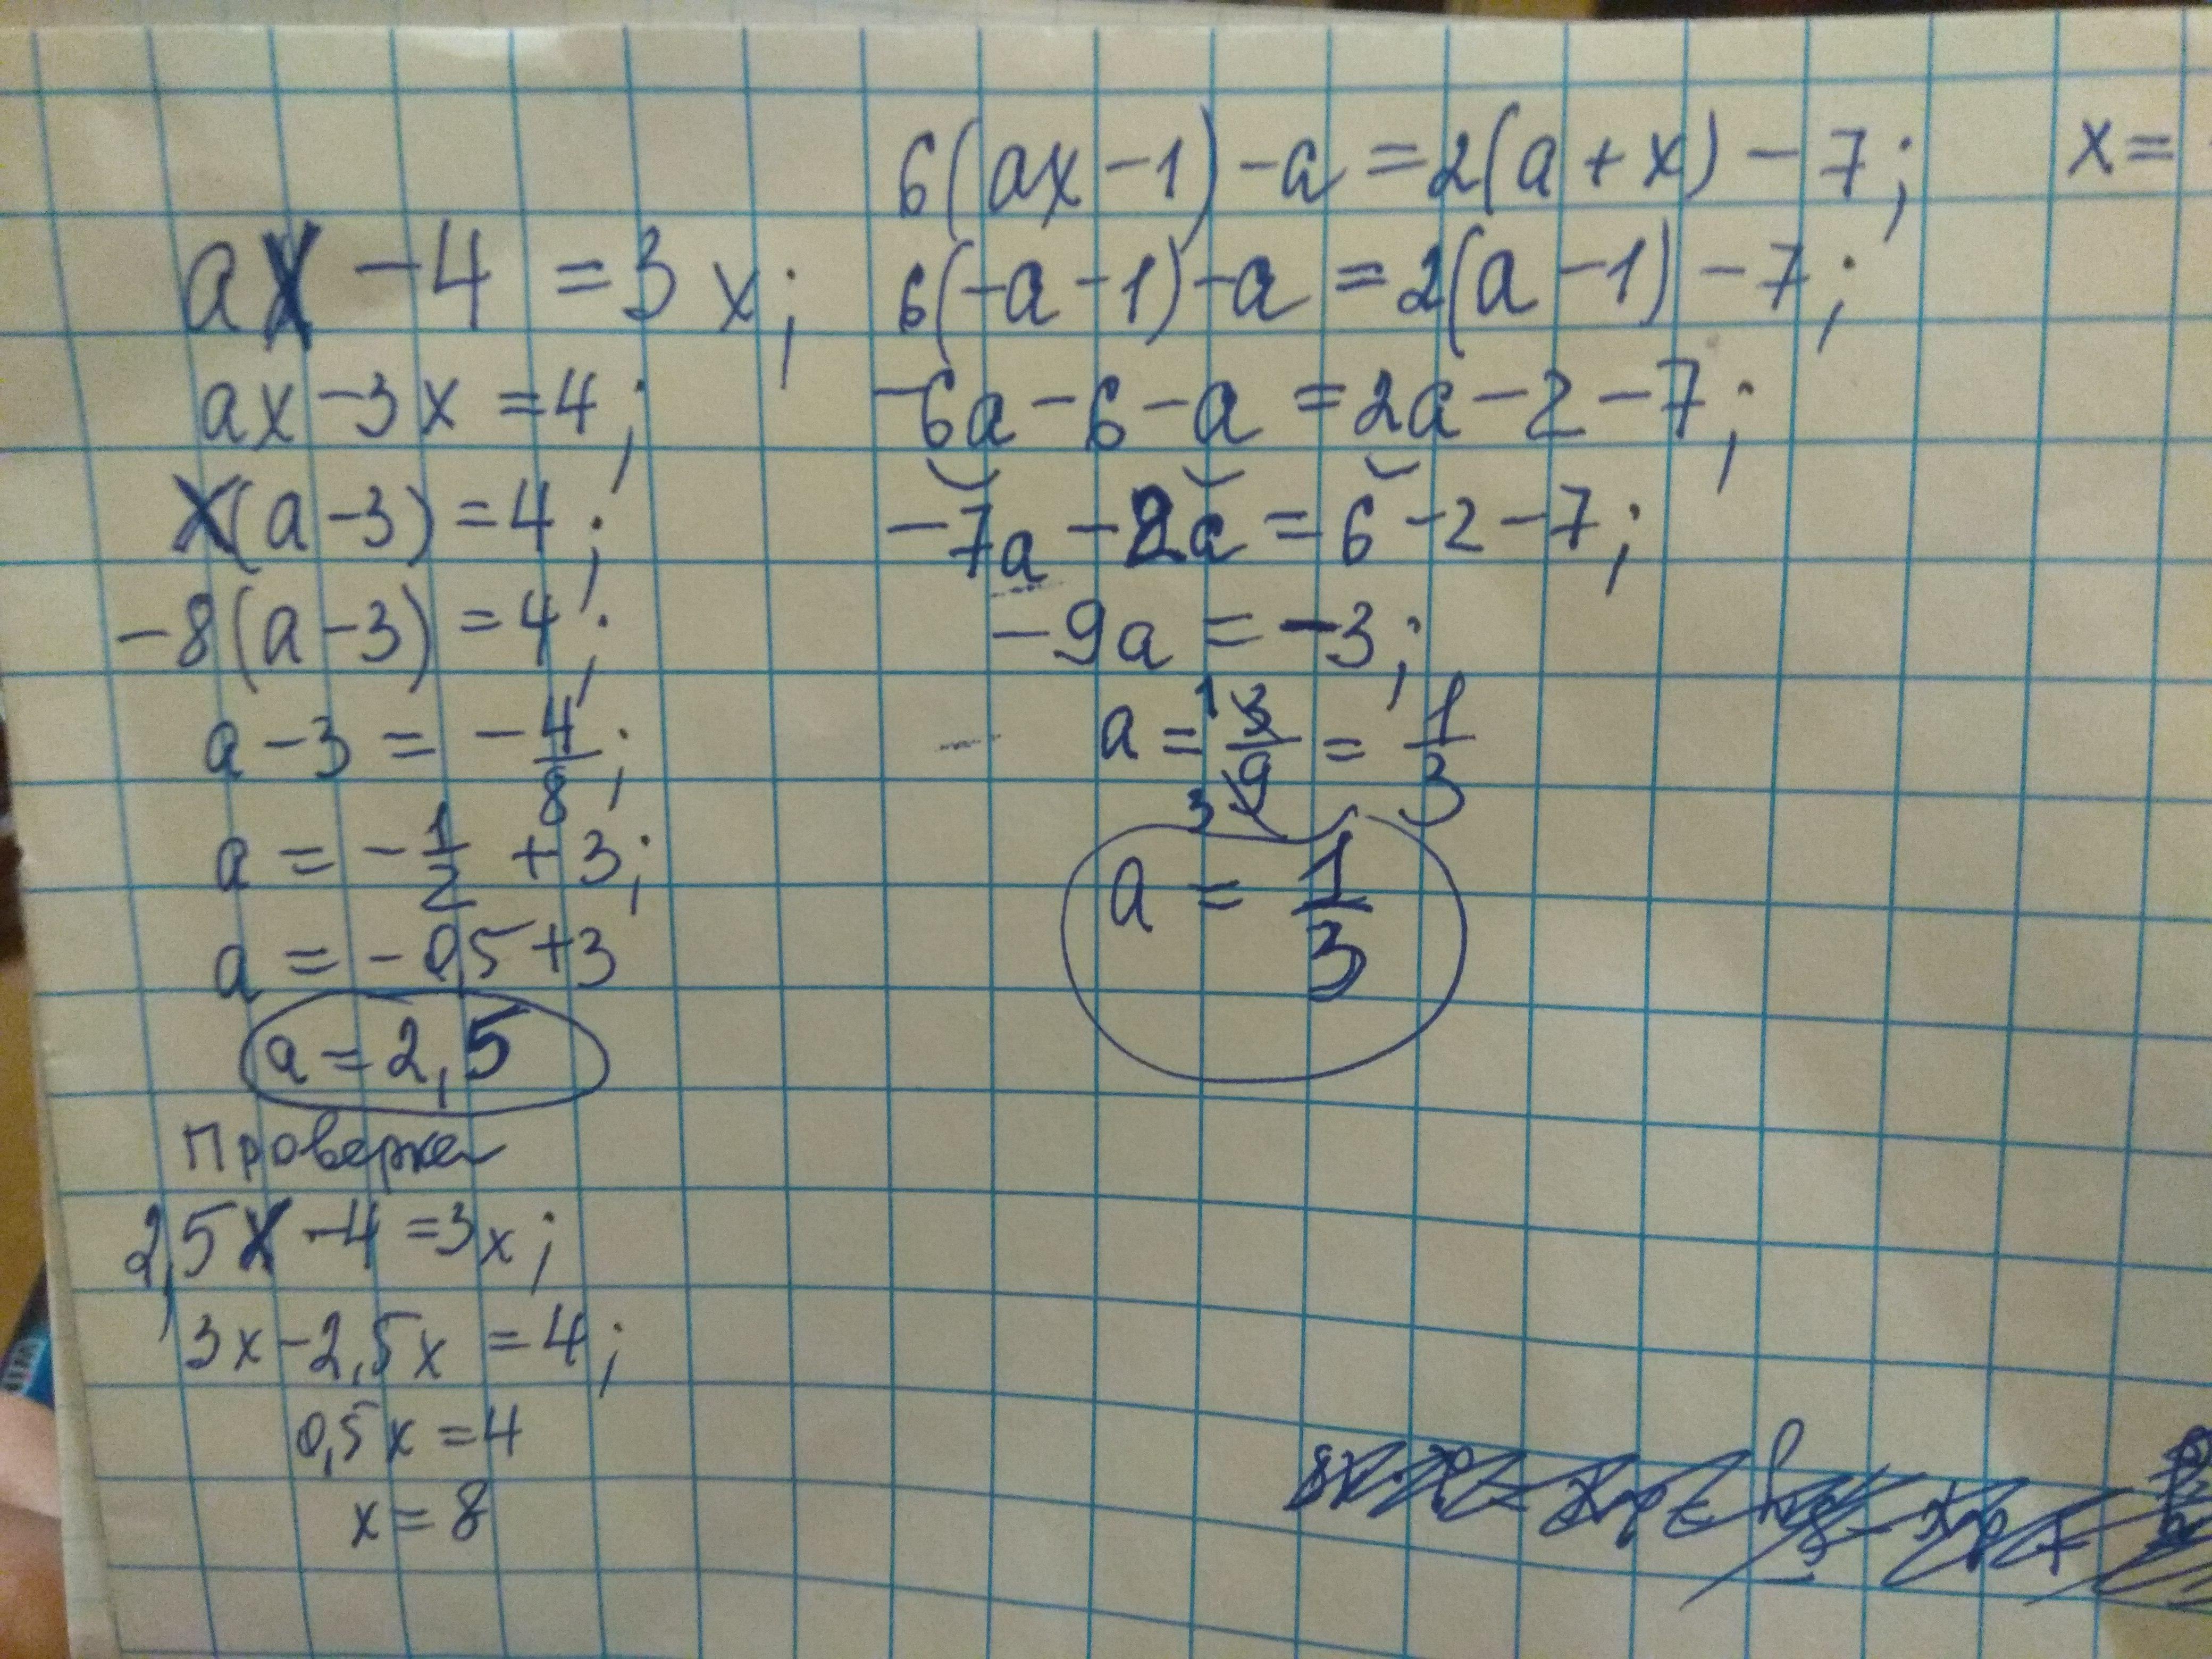 ax - 4 = 3x;
ax - 3x = 4;
x(a - 3) = 4;
-8(a - 3) = 4;
a - 3 = -4/8;
a = -1/2 + 3;
a = -0,5 + 3
a = 2,5
Проверка
2,5x - 4 = 3x;
3x - 2,5x = 4;
0,5x = 4
x = 8
6(ax - 1) - a = 2(a + x) - 7; x =
6(-a - 1) - a = 2(a - 1) - 7;
-6a - 6 - a = 2a - 2 - 7;
-7a - 2a = 6 - 2 - 7;
-9a = -3;
a = 3/9 = 1/3
a = 1/3